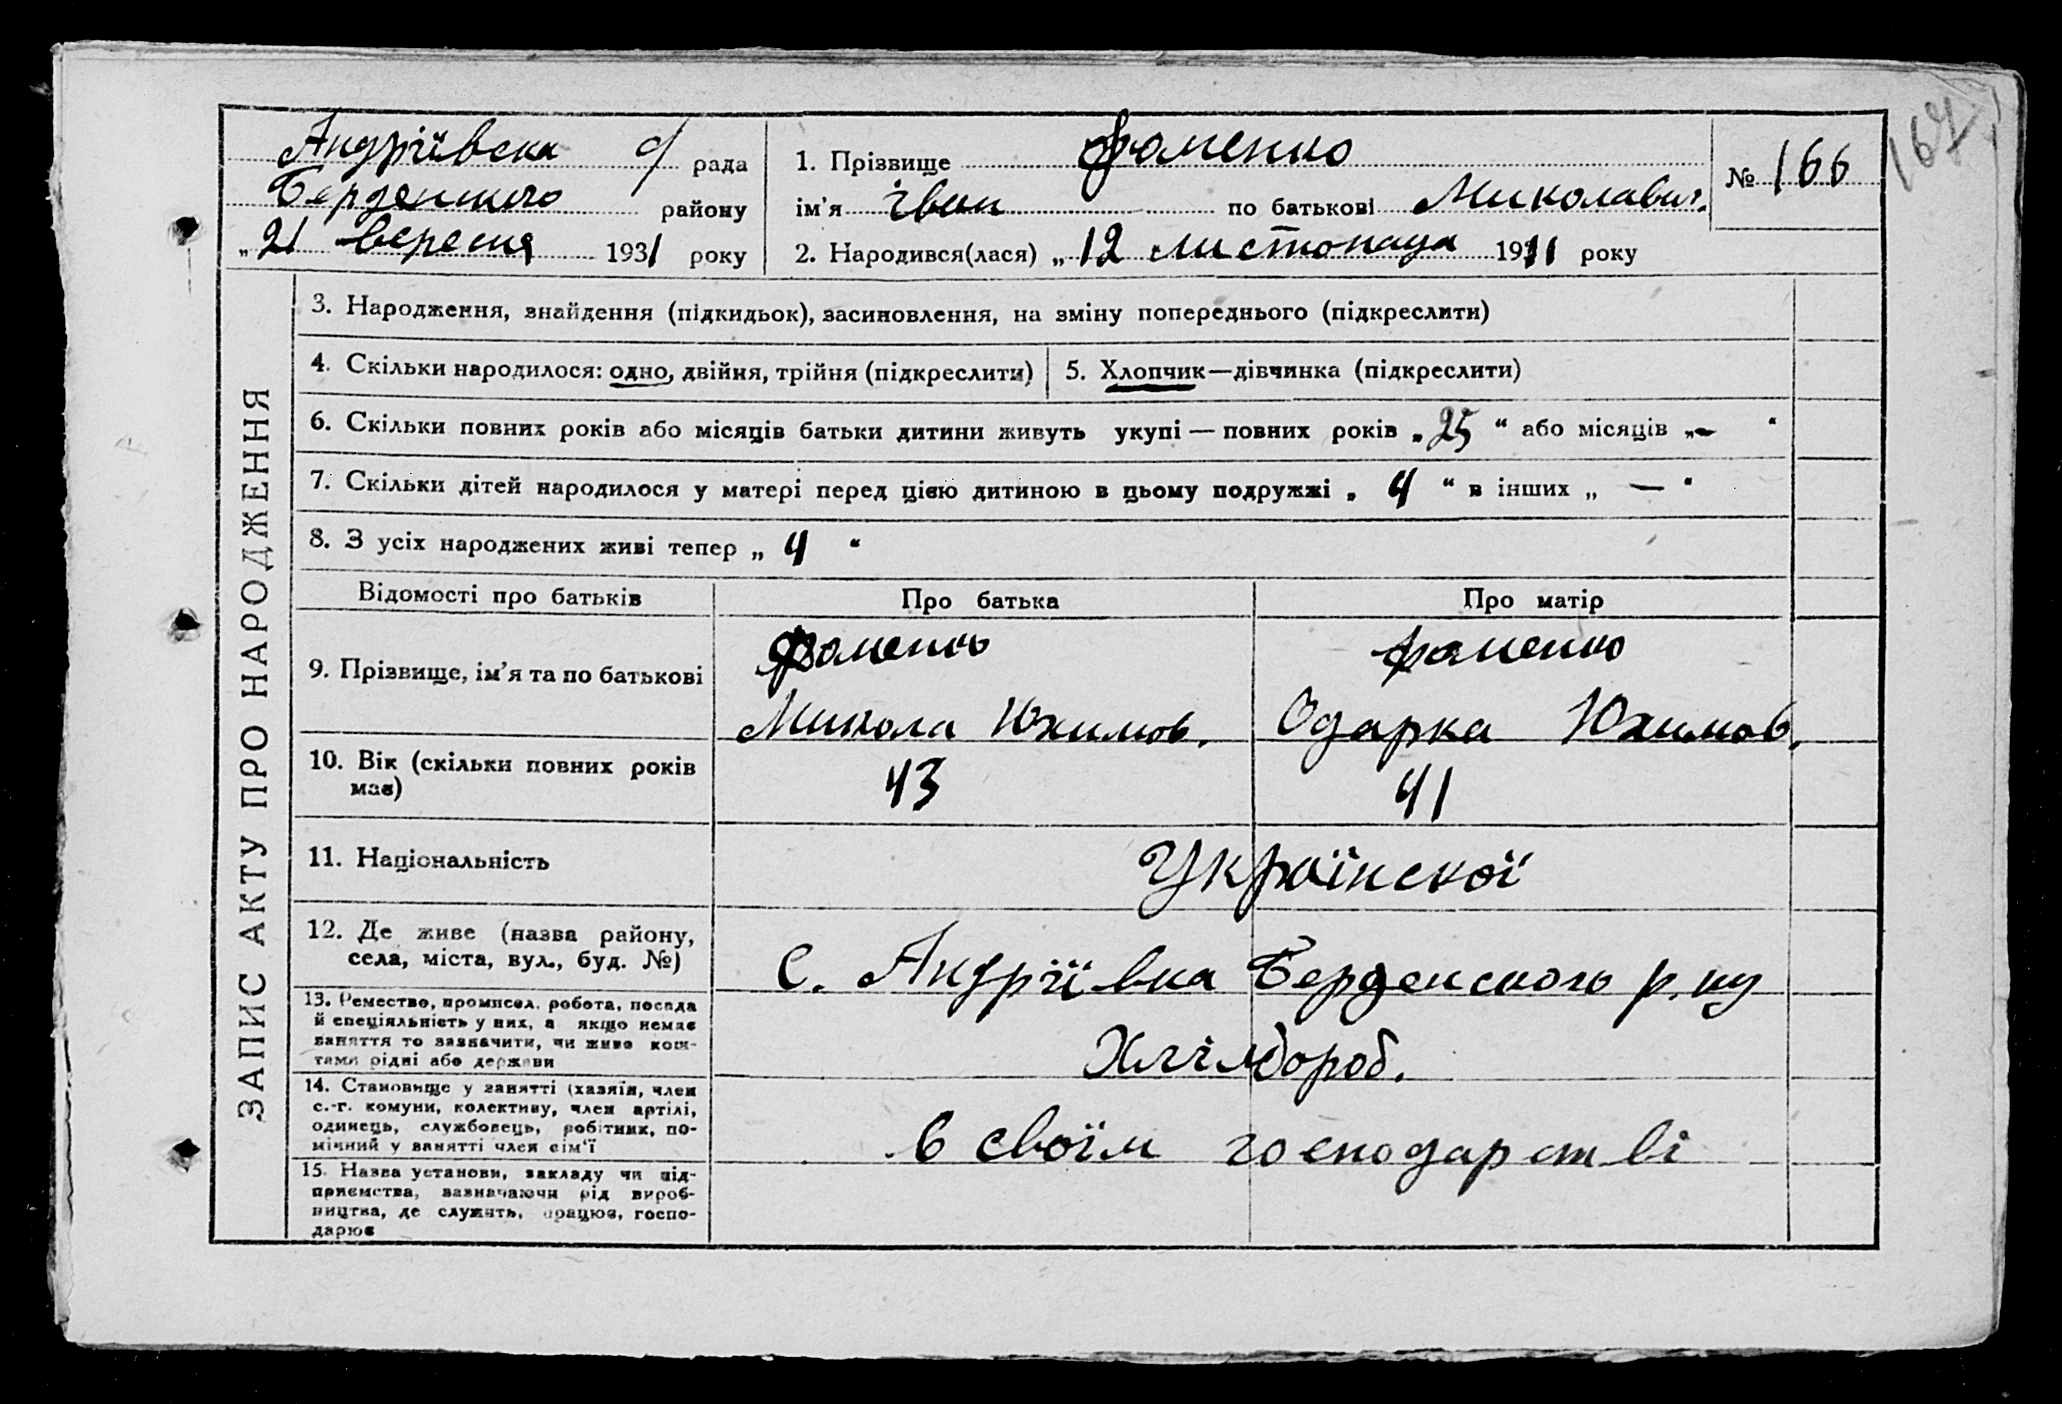 Андріївська с/ рада
Берденського району
„21 вересня 1931 року
1. Прізвище Фоменко
ім'я Іван по батькові Миколавич.
2. Народився(лася) „12 листопада 1911 року
№ 166
167
ЗАПИС АКТУ ПРО НАРОДЖЕННЯ
3. Народження, знайдення (підкидьок), засиновлення, на зміну попереднього (підкреслити)
4. Скільки народилося: одно, двійня, трійня (підкреслити)
5. Хлопчик—дівчинка (підкреслити)
6. Скільки повних років або місяців батьки дитини живуть укупі — повних років „25“ або місяців „—“
7. Скільки дітей народилося у матері перед цією дитиною в цьому подружжі „4“ в інших „—“
8. З усіх народжених живі тепер „4“
Відомості про батьків
Про батька
Про матір
9. Прізвище, ім'я та по батькові
Фоменко
Микола Юхимов.
Фоменко
Одарка Юхимов.
10. Вік (скільки повних років
має)
43
41
11. Національність
Української
12. Де живе (назва району,
села, міста, вул., буд. №)
С. Андріївка Берденського р.ну
13. Ремество, промисел, робота, посада
й спеціяльність у них, а якщо немає
заняття то зазначити, чи живе кош-
тами рідні або держави
Хлібороб.
14. Становище у занятті (хазяїн, член
с.-г. комуни, колективу, член артілі,
одинець, службовець, робітник, по-
мічний у занятті член сім'ї
в своїм господарстві
15. Назва установи, закладу чи під-
приємства, зазначаючи рід вироб-
ництва, де служить, працює, госпо-
дарює